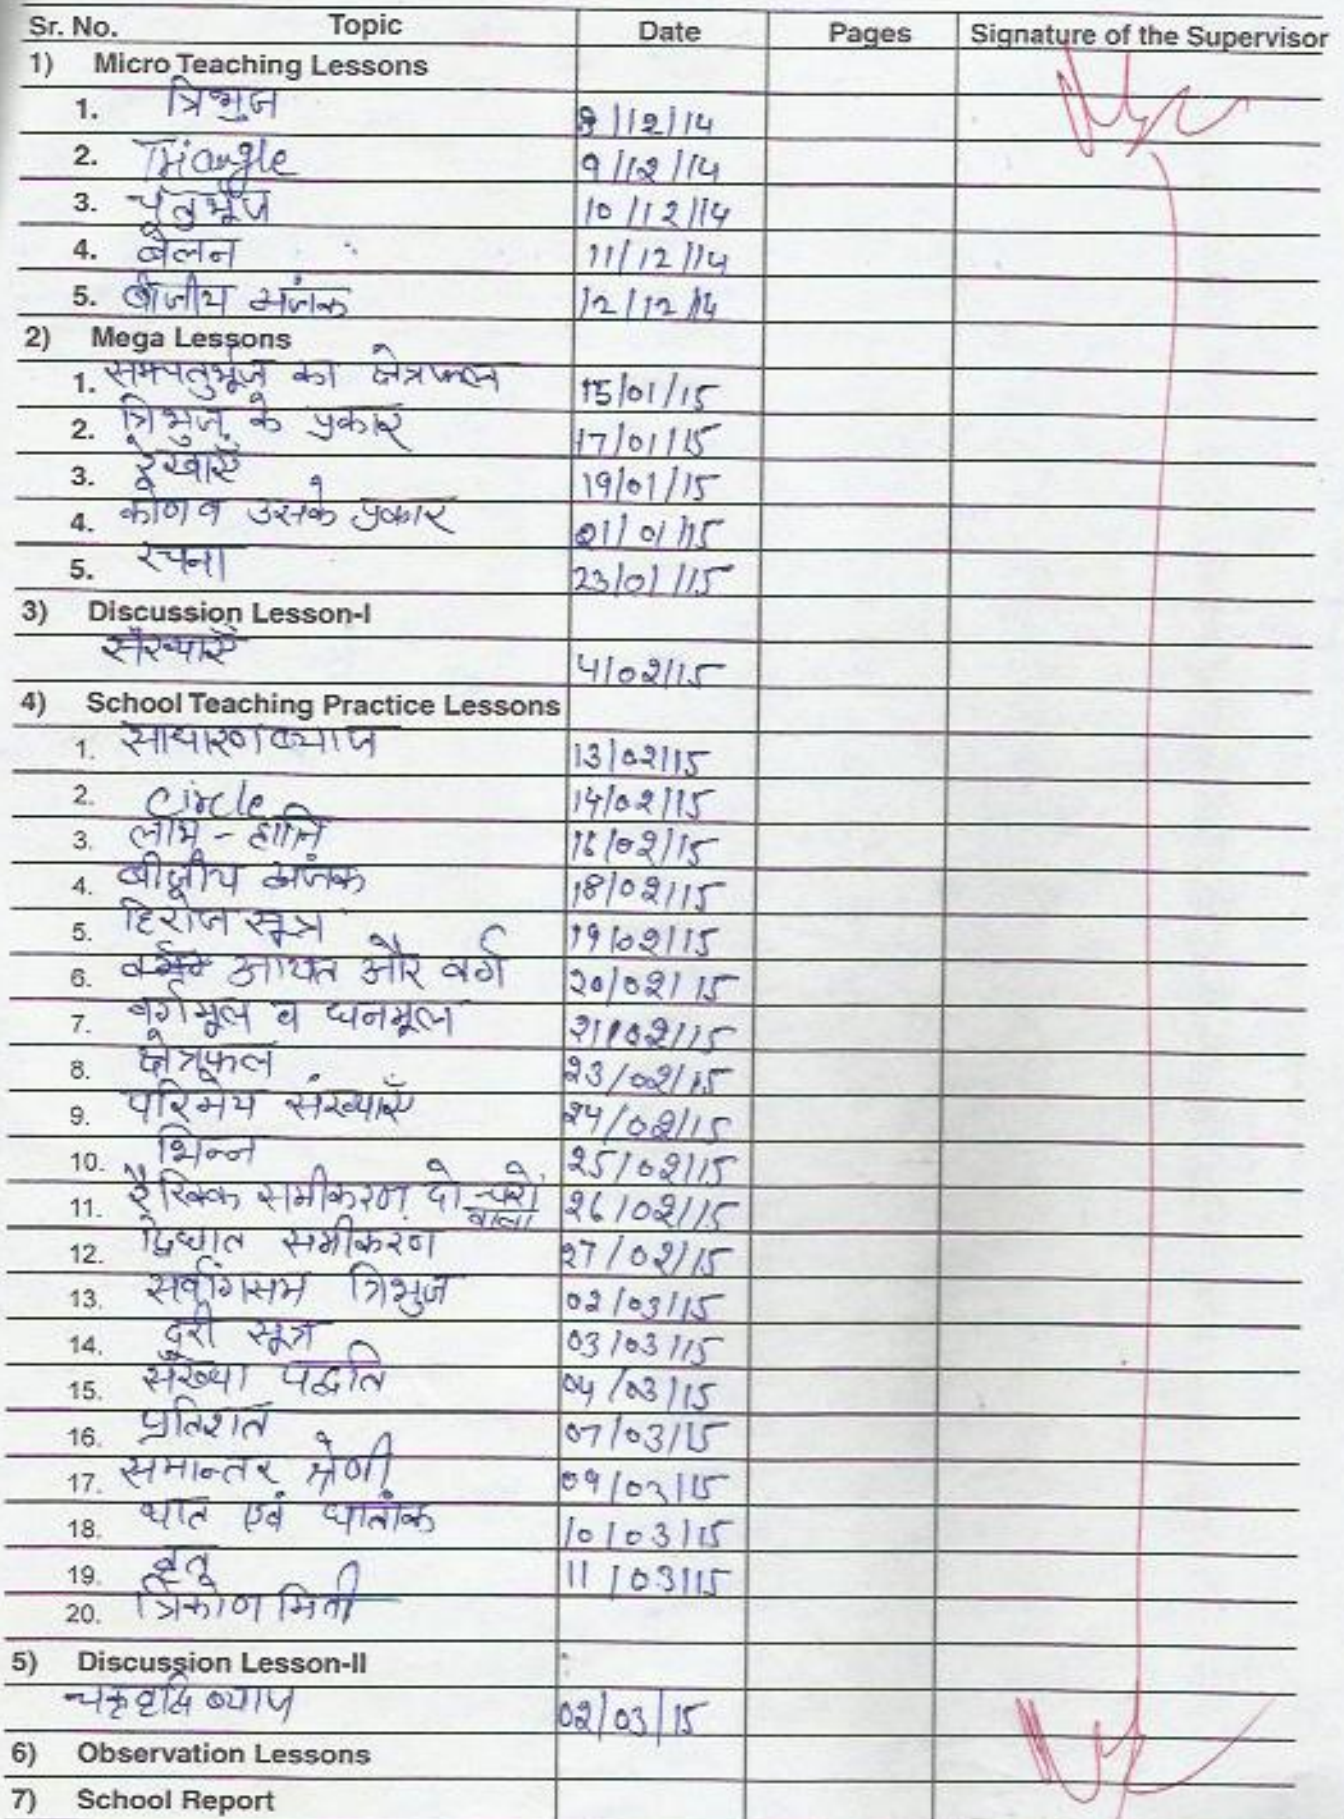 Sr. No. Topic Date Pages Signature of the Supervisor
1) Micro Teaching Lessons
1. त्रिभुज 8/12/14
2. Triangle 9/12/14
3. चतुर्भुज 10/12/14
4. बेलन 11/12/14
5. बीजीय भंजक 12/12/14
2) Mega Lessons
1. समचतुर्भुज का क्षेत्रफल 15/01/15
2. त्रिभुज के प्रकार 17/01/15
3. रेखाएँ 19/01/15
4. कोण व उसके प्रकार 21/01/15
5. रचना 23/01/15
3) Discussion Lesson-I
संख्याएँ 4/02/15
4) School Teaching Practice Lessons
1. साधारण ब्याज 13/02/15
2. Circle 14/02/15
3. लाभ - हानि 16/02/15
4. बीजीय व्यंजक 18/02/15
5. हिरोज सूत्र 19/02/15
6. आयत और वर्ग 20/02/15
7. वर्गमूल व घनमूल 21/02/15
8. क्षेत्रफल 23/02/15
9. परिमेय संख्याएँ 24/02/15
10. भिन्न 25/02/15
11. रैखिक समीकरण दो चरों वाला 26/02/15
12. द्विघात समीकरण 27/02/15
13. सर्वांगसम त्रिभुज 02/03/15
14. दुरी सूत्र 03/03/15
15. संख्या पद्धति 04/03/15
16. प्रतिशत 07/03/15
17. समान्तर श्रेणी 09/03/15
18. घात एवं घातांक 10/03/15
19. 11/03/15
20. त्रिकोण मिती
5) Discussion Lesson-II
चक्रवृद्धि ब्याज 02/03/15
6) Observation Lessons
7) School Report